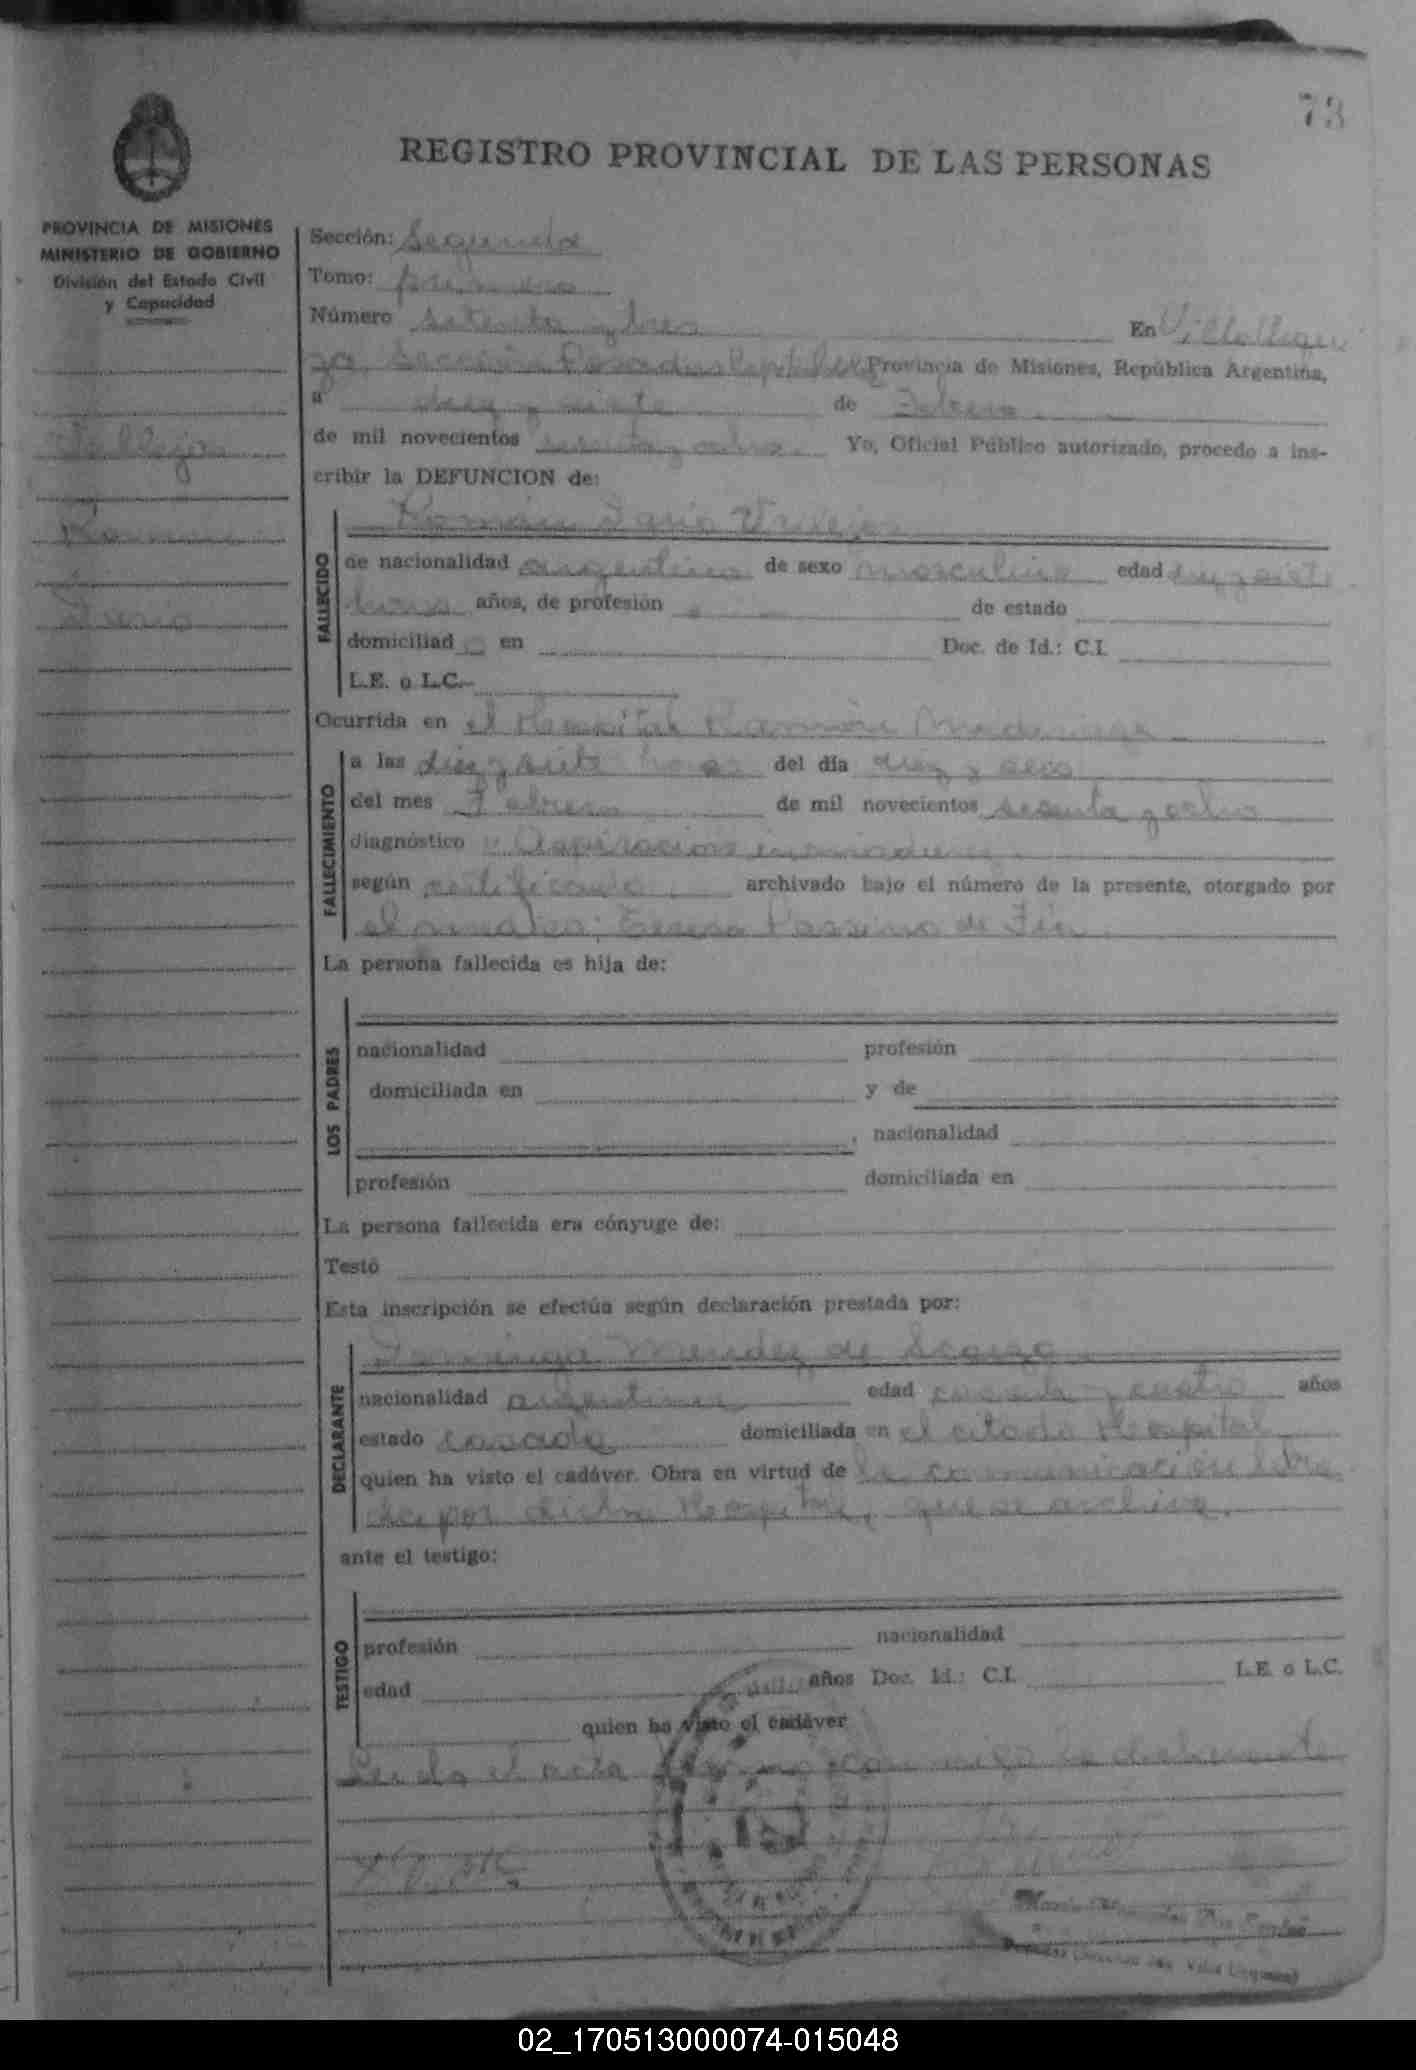 73
REGISTRO PROVINCIAL DE LAS PERSONAS
PROVINCIA DE MISIONES
MINISTERIO DE GOBIERNO
División del Estado Civil
y Capacidad
Vallejos
Román
Dario
Sección: Segunda
Tomo: primero
Número setenta y tres En Villa Urqui
za, Sección Posadas Provincia de Misiones, República Argentina,
a diez y siete de Febrero
de mil novecientos sesenta y ocho. Yo, Oficial Público autorizado, procedo a ins-
cribir la DEFUNCION de:
Román Dario Vallejos
FALLECIDO
de nacionalidad argentina de sexo masculino edad diez y siete
horas años, de profesión de estado
domiciliado en Doc. de Id.: C.I.
L.E. o L.C.
Ocurrida en el Hospital Ramón Madariaga
FALLECIMIENTO
a las diez y siete horas del día diez y seis
del mes Febrero de mil novecientos sesenta y ocho
diagnóstico Aspiración inmadurez
según certificado archivado bajo el número de la presente, otorgado por
el médico; Teresa de
La persona fallecida es hija de:
LOS PADRES
nacionalidad profesión
domiciliada en y de
, nacionalidad
profesión domiciliada en
La persona fallecida era cónyuge de:
Testó
Esta inscripción se efectúa según declaración prestada por:
DECLARANTE
Dominga Mendez de
nacionalidad argentina edad y cuatro años
estado casada domiciliada en el citado Hospital
quien ha visto el cadáver. Obra en virtud de la comunicación
por dicho Hospital, que se archiva.
ante el testigo:
TESTIGO
profesión nacionalidad
edad años Doc. Id.: C.I. L.E. o L.C.
quien ha visto el cadáver
Leída el acta conmigo la declarante
02_170513000074-015048